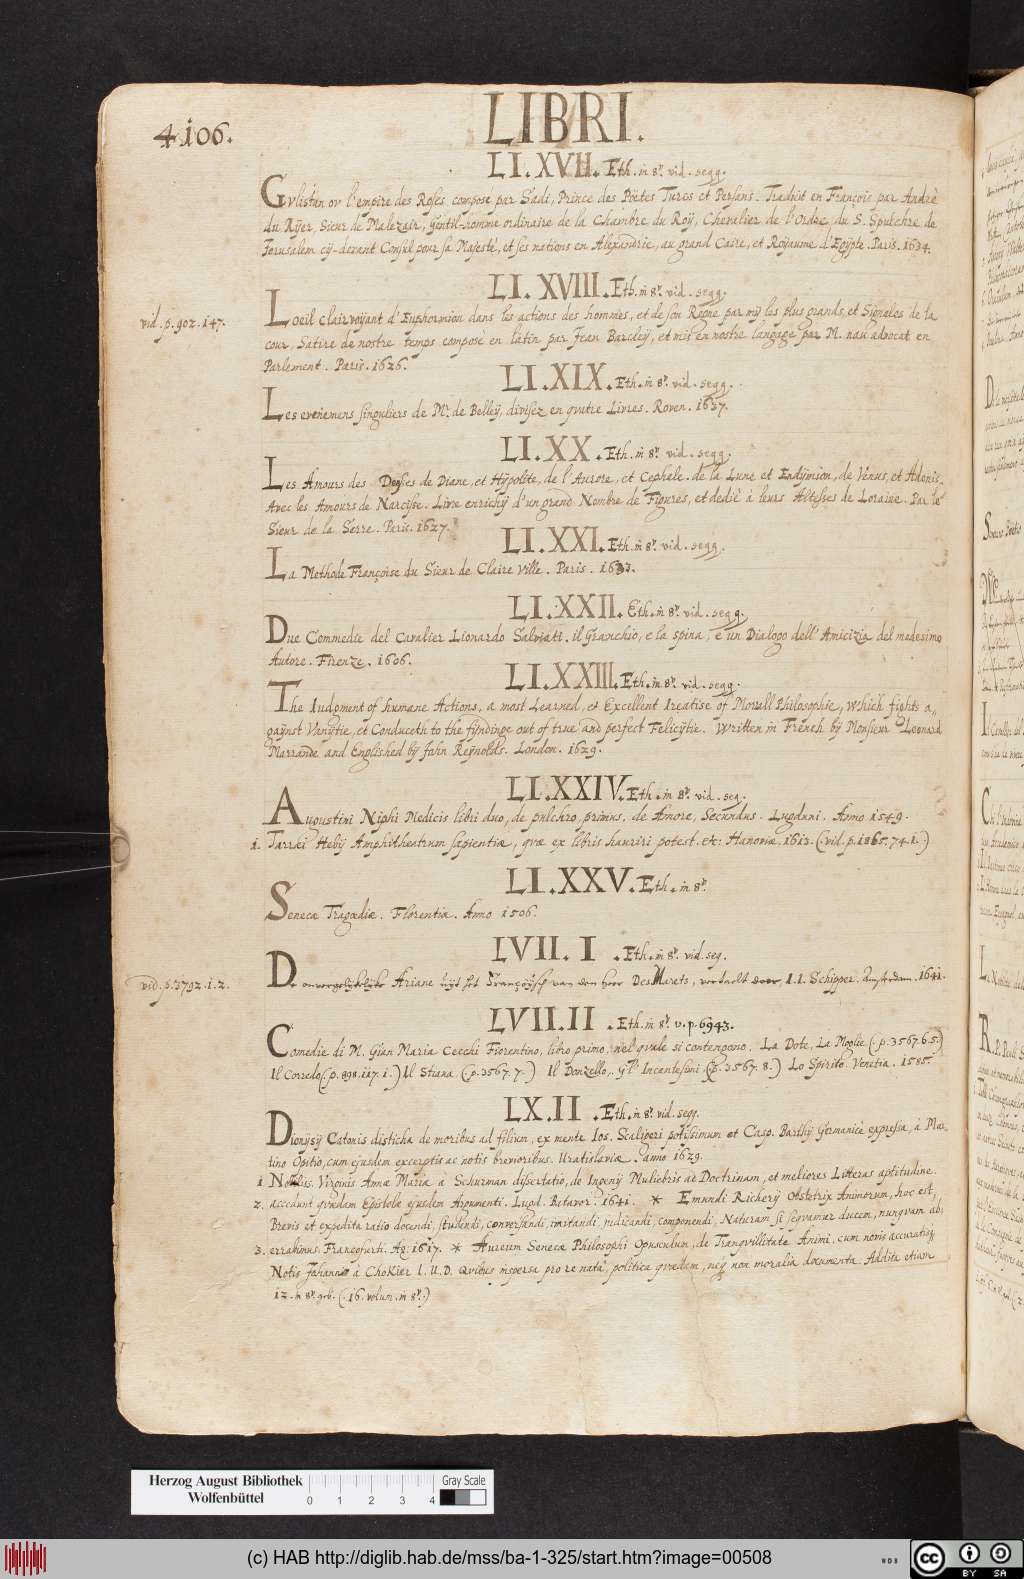 4106.
LIBRI.
LI. XVII. Eth. in 8º. vid. segg.
Gvlistan ov l'empire des Roses composé par Sadi, Prince des Poëtes Turcs et Persans. Traduit en François par André
du Rÿer, Sieur de Malezair, Gentil-homme ordinaire de la Chambre du Roÿ, Chevalier de l'Ordre du S. Spulchre de
Jerusalem cÿ-devant Consul pour sa Majesté, et ses nations en Alexandrie, au grand Caire, et Roÿaume d'Egÿpte. Paris. 1634.
LI. XVIII. Eth. in 8º. vid. segg.
vid. p. 902. 147.
Loeil clairvoÿant d'Euphormion dans les actions des hommes, et de son Regne parmÿ les plus grands, et Signalez de la
cour, Satire de nostre temps composé en latin par Jean Barcleÿ, et mis en nostre langage par M. nau advocat en
Parlement. Paris. 1626.
LI. XIX. Eth. in 8º. vid. segg.
Les evenemens singuliers de Mr. de Belleÿ, divisez en qvatre Livres. Roven. 1637.
LI. XX. Eth. in 8º. vid. segg.
Les Amours des Deesses de Diane, et Hÿpolite, de l'Aurore, et Cephéle. de la Lune et Endÿmion, de Vénus, et Adonis.
Avec les Amours de Narcisse. Livre enrichÿ d'un grand Nombre de Figures, et dedié à leurs Altesses de Loraine. Par le
Sieur de la Serre. Paris. 1627.
LI. XXI. Eth. in 8º. vid. segg.
La Methode Françoise du Sieur de Claire Ville. Paris. 1633.
LI. XXII. Eth. in 8º. vid. segg.
Due Commedie del Cavalier Lionardo Salviati. il Granchio, e la spina, e un Dialogo dell'Amicizia del medesimo
Autore. Firenze. 1606.
LI. XXIII. Eth. in 8º. vid. segg.
The Iudgment of humane Actions, a most Learned, et Excellent treatise of Morall Philosophie, which fights a,,
gaÿnst Vanÿtie, et Conduceth to the fÿndinge out of true and perfect Felicÿtie. Written in French bÿ Monsieur Leonard
Marrande and Englished bÿ John Reÿnolds. London. 1629.
LI. XXIV. Eth. in 8º. vid. seg.
Augustini Niphi Medicis libri duo, de pulchro, primus. de Amore, Secundus. Lugduni. Anno 1549.
1. Tarræi Hebij Amphitheatrum sapientiæ, qvæ ex libris hauriri potest. etc. Hanoviæ. 1613. (. vid. p. 1865. 74. 1. )
LI. XXV. Eth. in 8º.
Senecæ Tragœdiæ. Florentiæ. Anno 1506.
LVII. I. Eth. in 8º. vid. seg.
vid. p. 3792. 1. 2.
De onvergelijckelijcke Ariane uijt het Françoÿsch van den heer Des Marets, vertaelt door, I. I. Schipper. Amsterdam. 1641.
LVII. II. Eth. in 8º. v. p. 6943.
Comedie di M. Gian Maria Cecchi Fiorentino, libro primo. nel qvale si contengono. La Dote, La Moglie (. p. 3567. 6. 5.)
Il Corredo (. p. 898. 127. 1. ) Il Stiava. (. p. 3567. 7. ) Il Donzello,. Gl' Incantesimi. (p. 3567. 8. ) Lo Spirito. Venetia. 1585.
LX. II. Eth. in 8º. vid. segg.
Dionÿsÿ Catonis disticha de moribus ad filium, ex mente Ios. Scaligeri potissimum et Casp. Barthÿ Germanicè expressa, à Mar.
tino Opitio, cum ejusdem excerptis ac notis brevioribus. Uratislaviæ. anno 1629.
1 Nobiliss. Virginis Annæ Mariæ a Schurman dissertatio, de Ingenÿ Muliebris ad Doctrinam, et meliores Litteras aptitudine.
2. accedunt qvædam Epistolæ ejusdem Argumenti. Lugd. Batavor. 1641. * Emundi Richerÿ Obstetrix Animorum, hoc est,
Brevis et expedita ratio docendi, studendi, conversandi, imitandi, judicandi, componendi. Naturam si seqvamur ducem, nunqvam ab,
3. errabimus. Francofurti. Aº. 1617. * Aureum Senecæ Philosophi Opusculum, de Tranqvillitate Animi. cum novis accuratisq
Notis Johannis à Chokier I. U. D. qvibus inspersa pro re nata, politica qvædam, neq non moralia documenta. Addita etiam
12. in 8º. geb. (. 16. volum. in 8º. )
Herzog August Bibliothek
Wolfenbüttel
0 1 2 3 4
Gray Scale
(c) HAB http://diglib.hab.de/mss/ba-1-325/start.htm?image=00508
WDB
cc BY SA